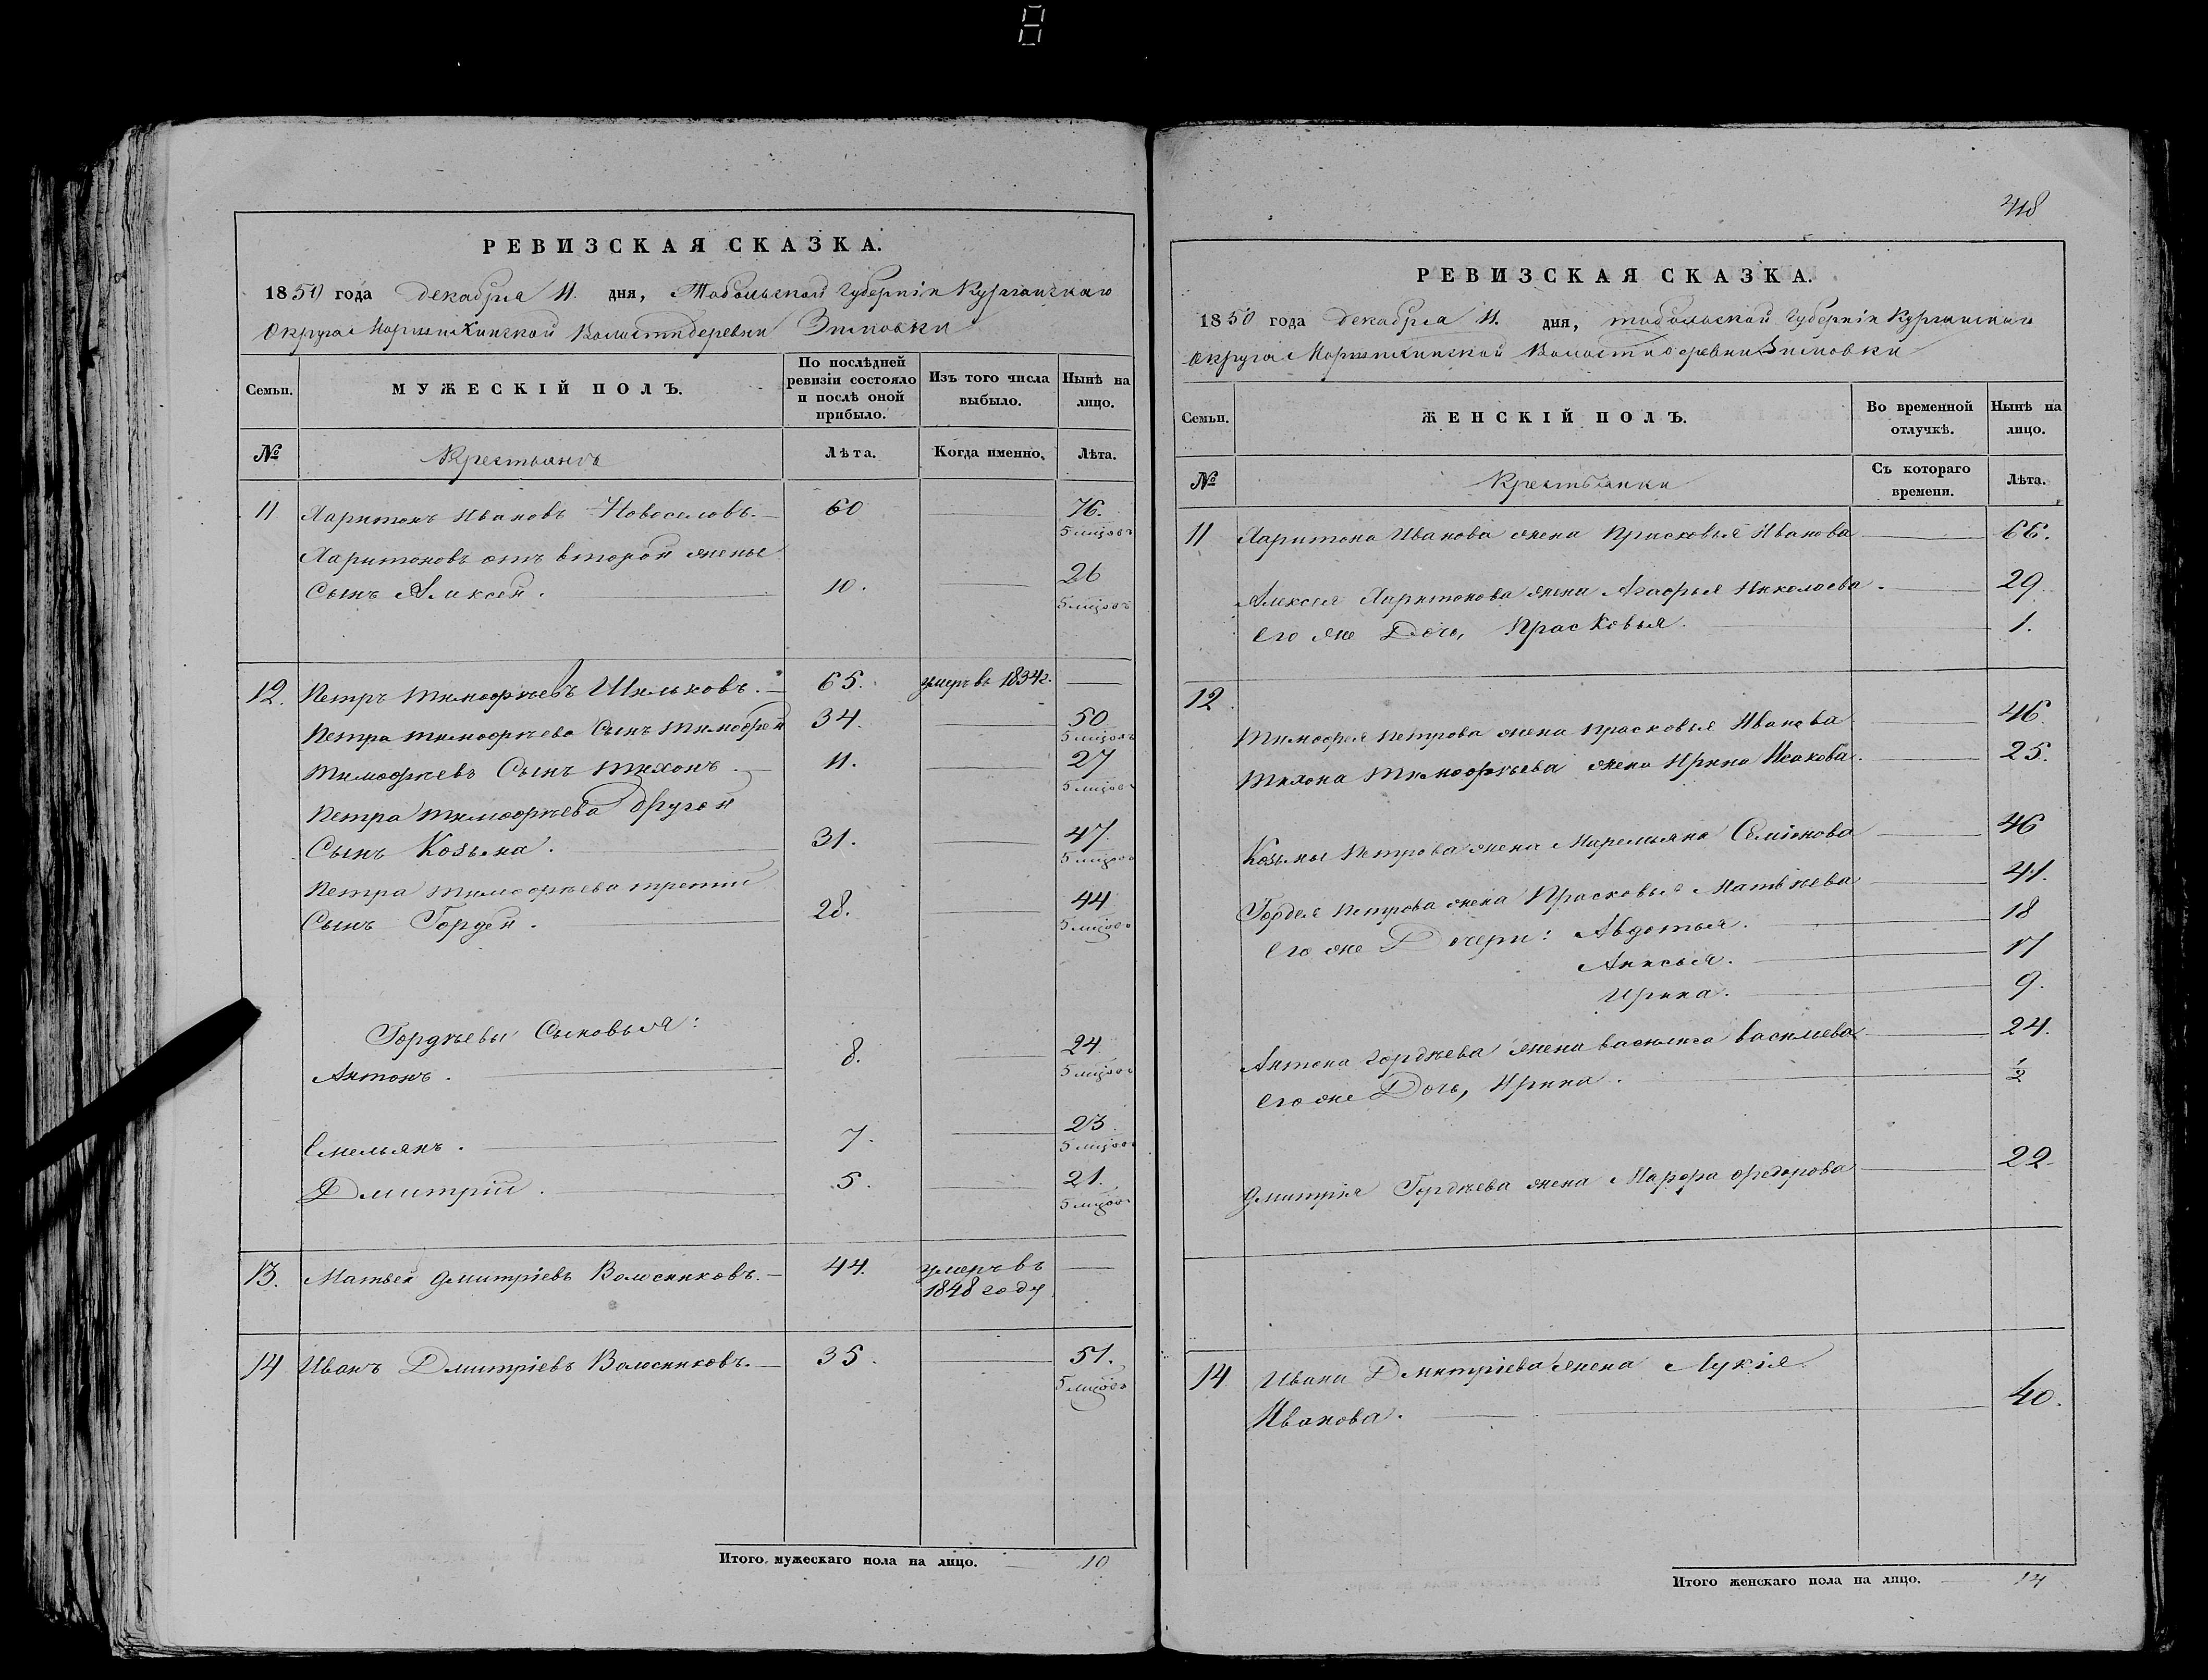 РЕВИЗСКАЯ СКАЗКА.
1850 года декабря 11. дня, Тобольской Губернiи Курганскаго
Округа Моршихинской Волости деревни Зимовки
Семьи.
МУЖЕСКІЙ ПОЛЪ.
По послѣдней ревизіи состояло и послѣ оной прибыло.
Изъ того числа выбыло.
Нынѣ на лицо.
№
Крестьянъ
Лѣта.
Когда именно.
Лѣта.
11 Харитонъ Ивановъ Новоселовъ. 60 76.
5 мицовъ
Харитоновъ отъ второй жены
Сынъ Алексей. 10. 26
5 мицовъ
12. Петръ Тимофѣевъ Шильковъ. 65. умеръ въ 1834 г.
Петра Тимофѣева Сынъ Тимофей 34. 50
Тимофѣевъ Сынъ Тихонъ. 11. 27
Петра Тимофѣева другой
Сынъ Козьма. 31. 47
Петра Тимофѣева третій
Сынъ Гордей. 28. 44
Гордѣевы Сыновья:
Антонъ. 8. 24
Емельянъ. 7. 23
Дмитрій. 5. 21.
13. Матвей Дмитріевъ Волосниковъ. 44. умеръ въ
1848 году
14 Иванъ Дмитріевъ Волосниковъ. 35. 51.
Итого мужескаго пола на лицо. 10
РЕВИЗСКАЯ СКАЗКА.
1850 года декабря 11. дня, тобольской Губернiи Курганскаго
Округа Моршихинской Волости деревни Зимовки
Семьи.
ЖЕНСКІЙ ПОЛЪ.
Во временной отлучкѣ.
Нынѣ на лицо.
№
Крестьянки
Съ котораго времени.
Лѣта.
11 Харитона Иванова жена Прасковья Иванова 66.
Алексея Харитонова жена Агафья Николаева. 29
Его же Дочь, Прасковья. 1.
12.
Тимофея Петрова жена Прасковья Иванова 46
Тихона Тимофѣева жена Ирина Исакова. 25.
Козьмы Петрова жена Маремьяна Семіонова 46
Гордея Петрова жена Прасковья Матвѣева 41.
Его же Дочери: Авдотья. 18
Анисья. 17
Ирина. 9.
Антона Гордѣева жена Василиса Васильева 24.
Его же Дочь, Ирина. 1/2
Дмитрія Гордѣева жена Марфа Федорова 22.
14 Ивана Дмитріева жена Лукія
Иванова. 40.
Итого женскаго пола на лицо. 14